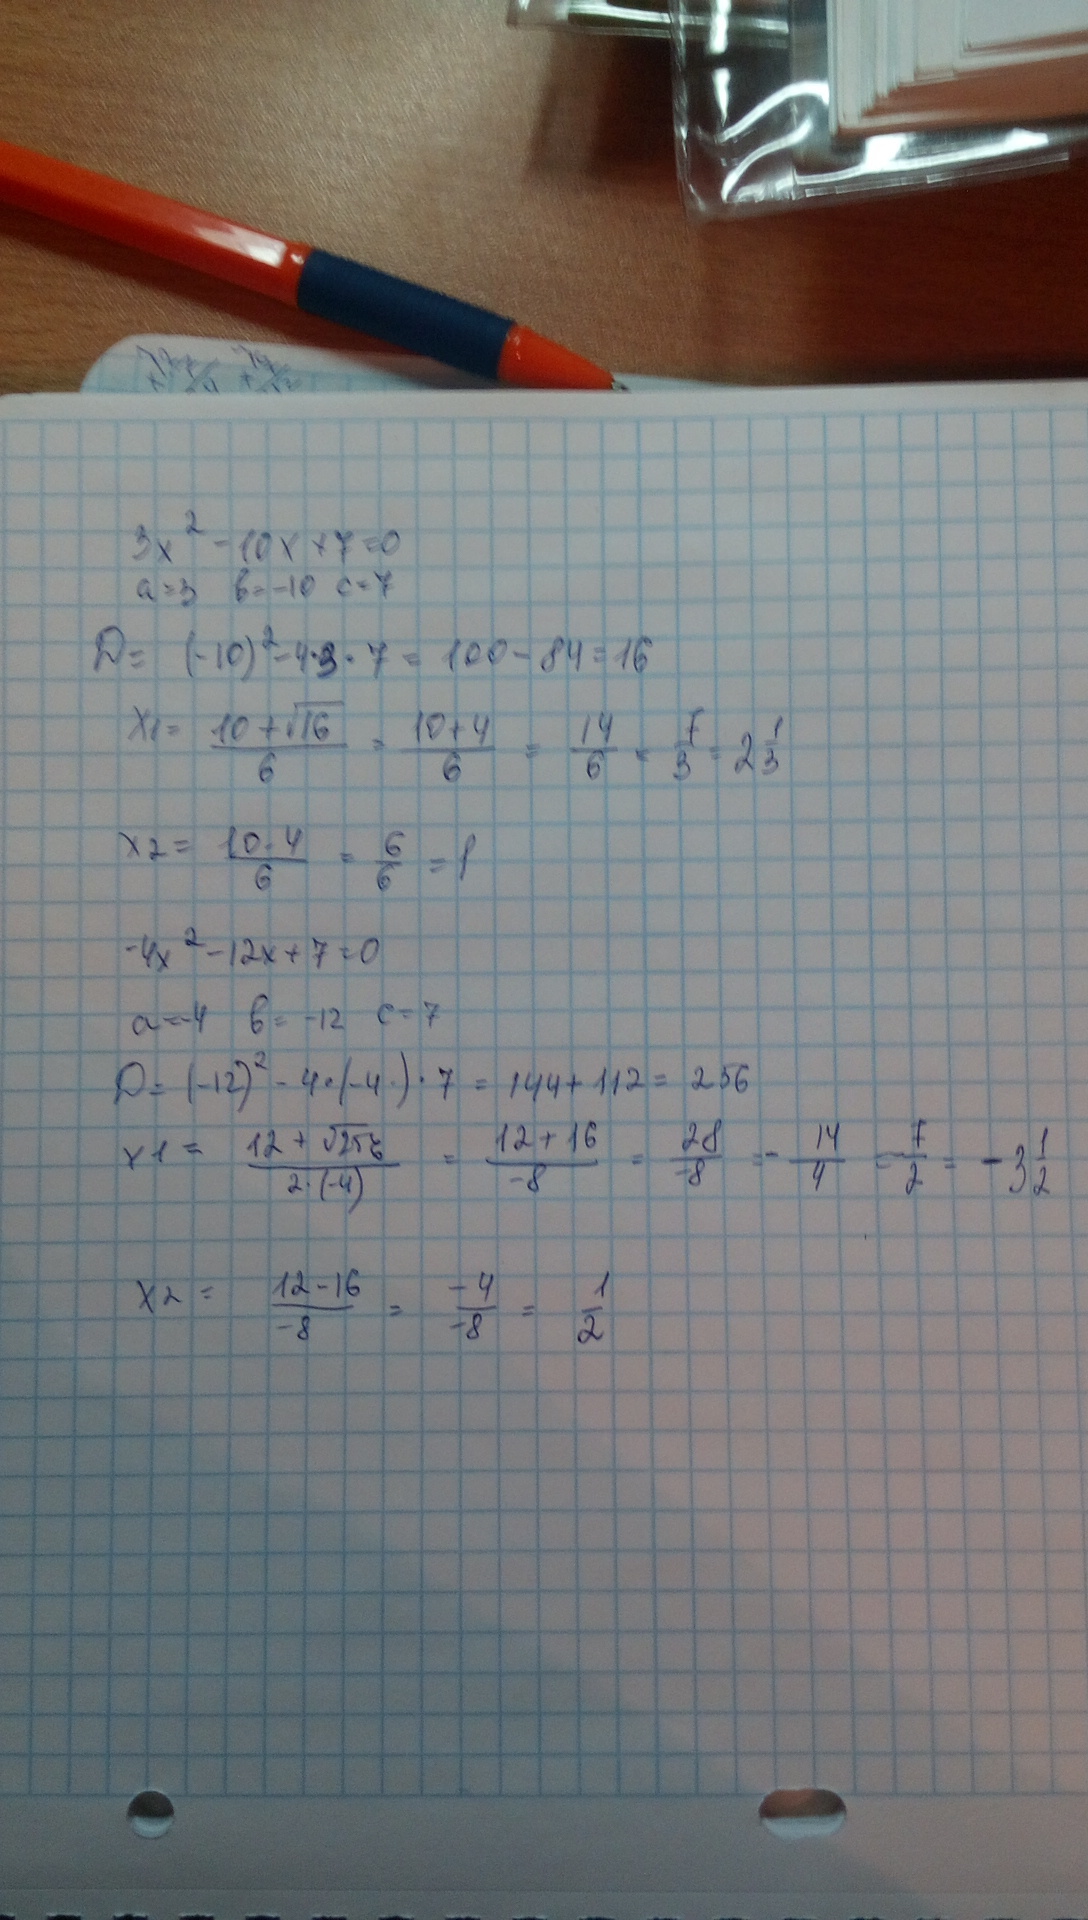 3x² - 10x + 7 = 0
a = 3 b = -10 c = 7
D = (-10)² - 4·3·7 = 100 - 84 = 16
x1 = (10 + √16)/6 = (10 + 4)/6 = 14/6 = 7/3 = 2 1/3
x2 = (10 - 4)/6 = 6/6 = 1
-4x² - 12x + 7 = 0
a = -4 b = -12 c = 7
D = (-12)² - 4·(-4)·7 = 144 + 112 = 256
x1 = (12 + √256)/(2·(-4)) = (12 + 16)/(-8) = 28/(-8) = -14/4 = -7/2 = -3 1/2
x2 = (12 - 16)/(-8) = (-4)/(-8) = 1/2